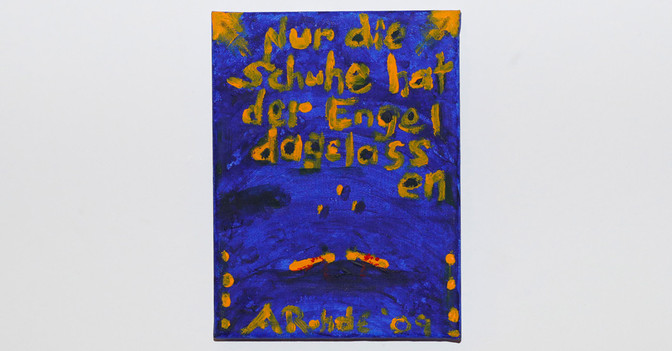 Nur die
Schuhe hat
der Engel
dagelass
en
A Rohde '09